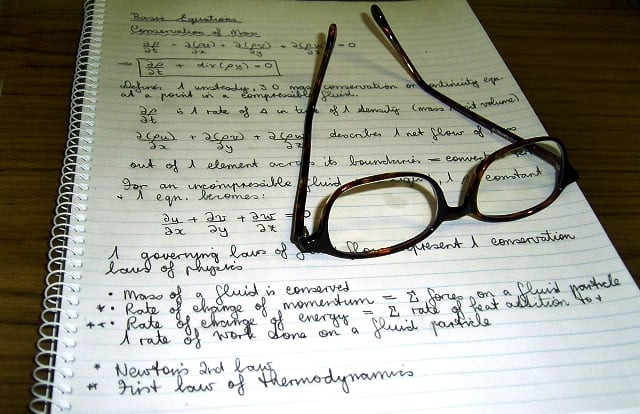 Basic Equations
Conservation of Mass
∂ρ/∂t + ∂(ρu)/∂x + ∂(ρv)/∂y + ∂(ρw)/∂z = 0
⇒ ∂ρ/∂t + div(ρu) = 0
Defines 1 unsteady, 3D mass conservation or continuity eqn.
at a point in a compressible fluid.
∂ρ/∂t is 1 rate of Δ in time of 1 density (mass volume)
∂(ρu)/∂x + ∂(ρv)/∂y + ∂(ρw)/∂z describes 1 net flow of
out of 1 element across its boundaries =
For an incompressible fluid constant
+ 1 eqn. becomes:
∂u/∂x + ∂v/∂y + ∂w/∂z = 0
1 governing laws of flow represent 1 conservation
laws of physics
• Mass of a fluid is conserved
*• Rate of change of momentum = Σ forces on a fluid particle
**• Rate of change of energy = Σ rate of heat addition to +
1 rate of work done on a fluid particle
* Newton's 2nd law
** First law of thermodynamics